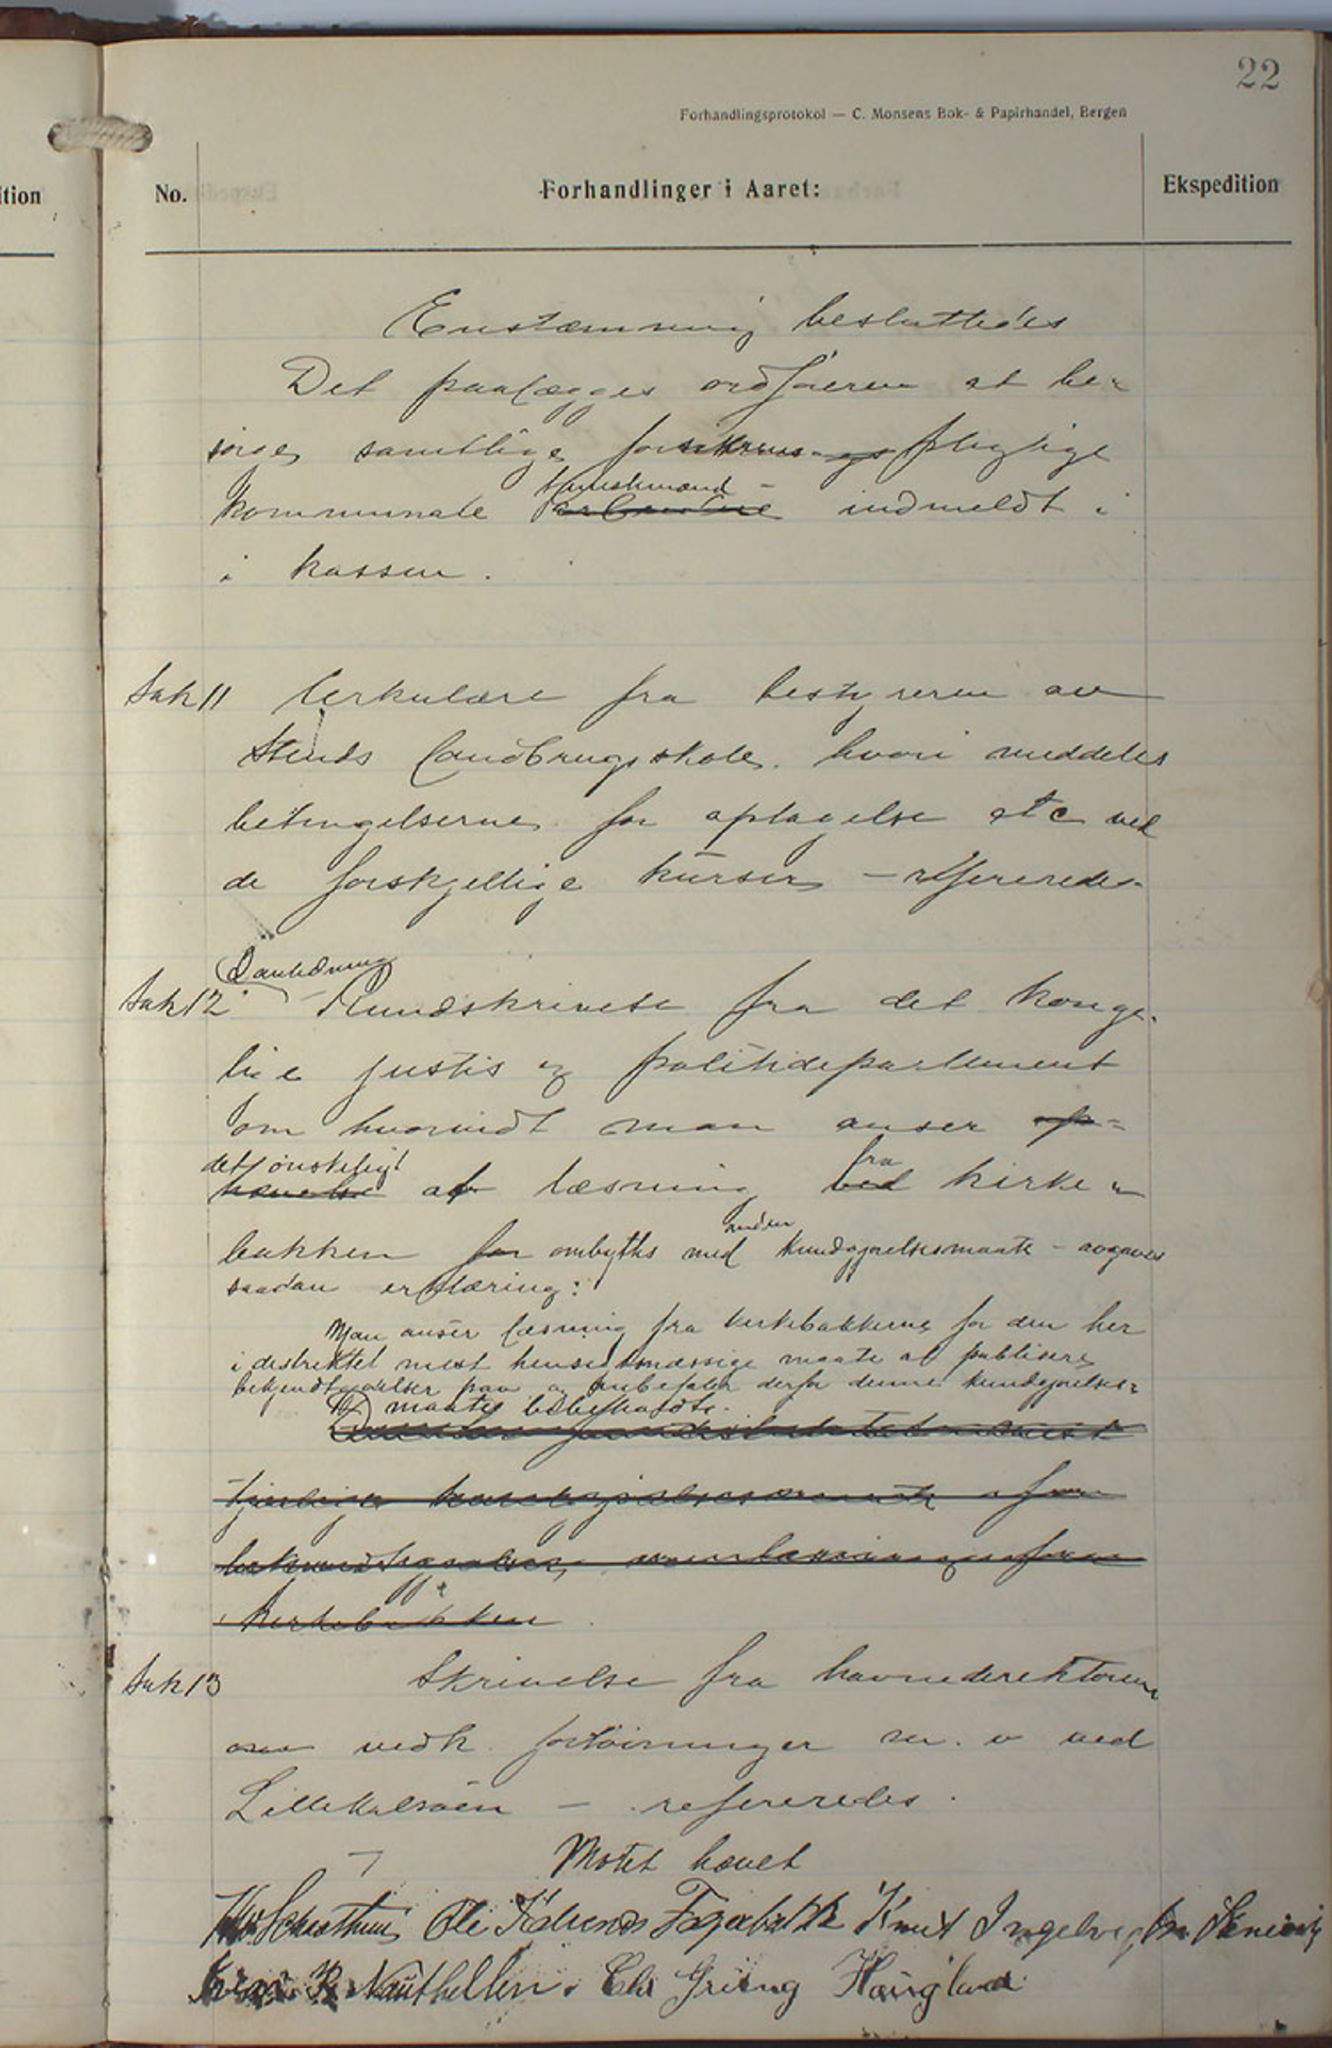 22
Forhandlingsprotokol — C. Monsens Bok- & Papirhandel, Bergen
ition
No.
Forhandlinger i Aaret:
Ekspedition
Enstemmig besluttedes
Det paalægges ordføreren at be-
sørge samtlige forsikringspligtige
tjenestemænd -
kommunale arbeidere indmeldt i
i kassen.
Sak 11 Cirkulære fra bestyreren av
Stends landbrugsskole hvori meddeles
betingelserne for optagelse etc ved
de forskjellige kurser – refereredes
I anledning
Sak 12 Rundskrivelse fra det konge-
lige justis og politidepartement
om hvorvidt man anser op-
det ønskeligt
hævelse at læsning fra ved kirke-
bakken for ombyttes med anden kundgjørelsesmaate – avgaves
saadan erklæring:
Man anser læsning fra kirkebakkerne for den her
i distriktet mest hensigtsmæssige maate at publisere
bekjendtgjørelser paa og anbefaler derfor denne kundgjørelses-
maate bibeholdt.
kirkebakken
Sak 13 Skrivelse fra havnedirektøren
vedk. fortøininger m. v ved
Lillekalsøen – refereredes.
Møtet hævet
Ole Fagerbakk Knut Ingebrigtsn
Nautheller. Chr Griung Haugland